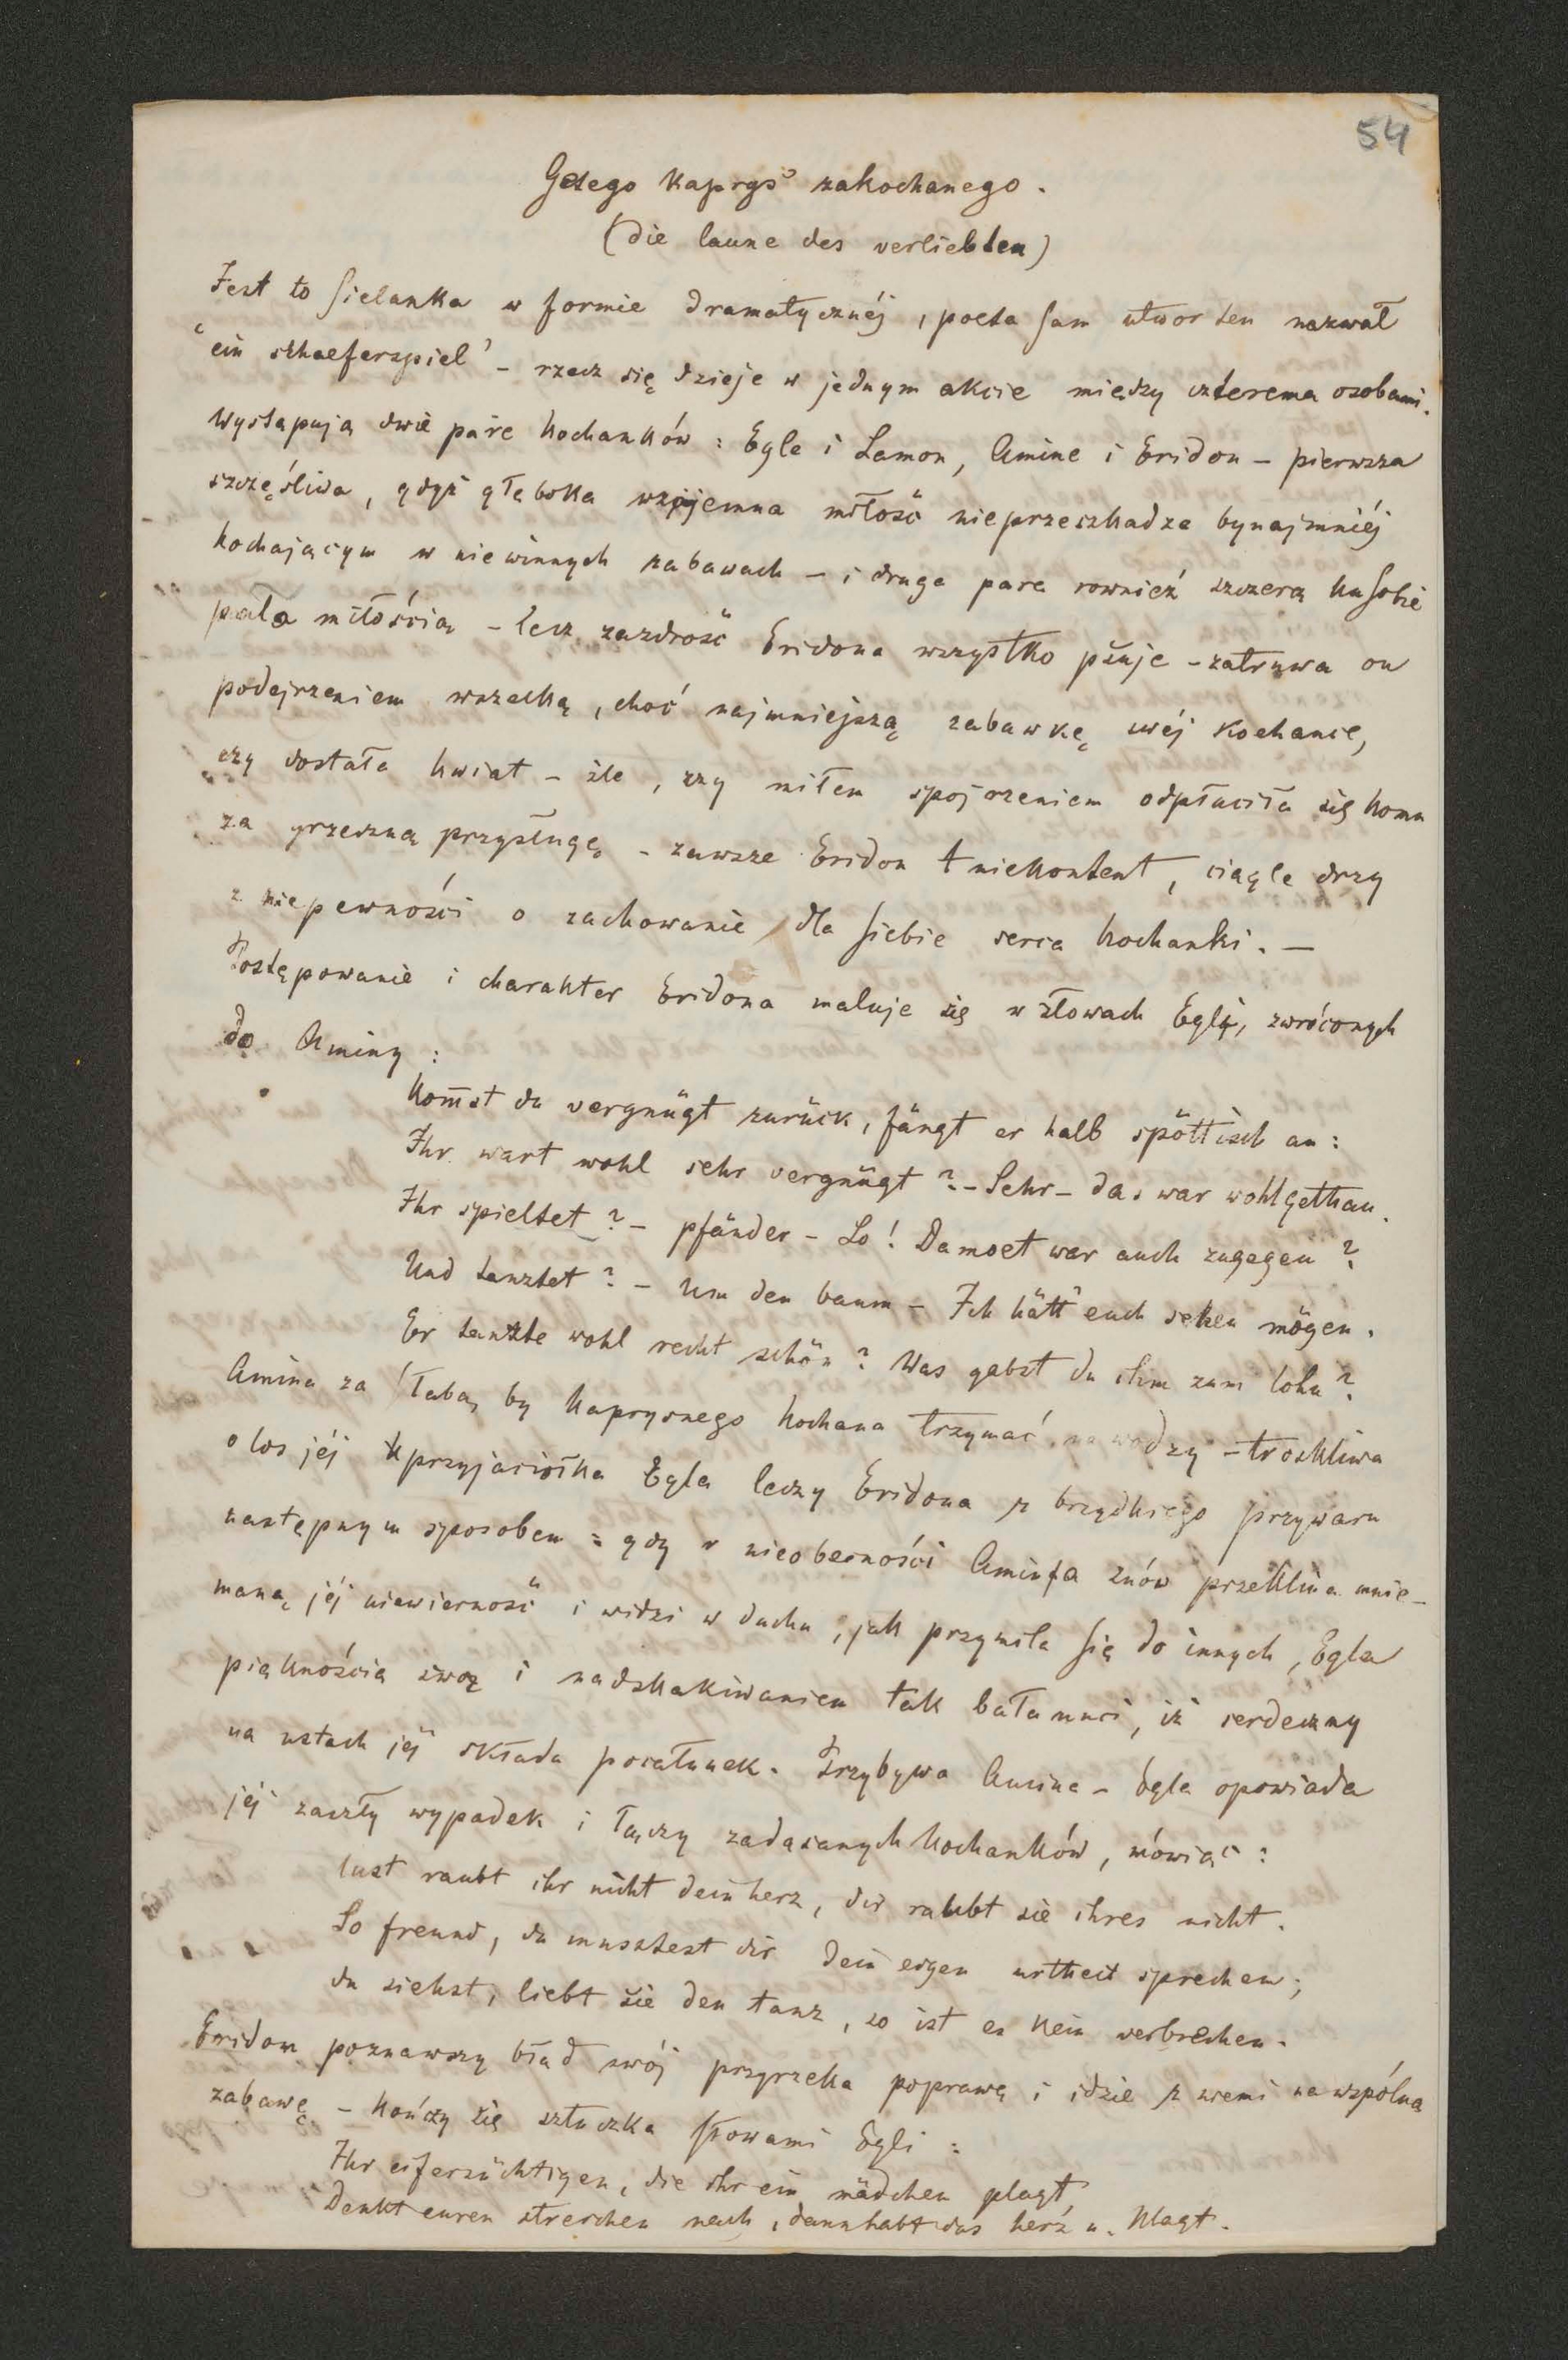 54
Getego Kaprys zakochanego.
(die laune des verliebten)
Jest to sielanka w formie dramatycznéj, poeta sam utwor ten nazwał
"ein schaeferspiel" – rzecz się dzieje w jednym akcie między czterema osobami.
Występują dwie pare kochanków: Egle i Lamon, Amine i Eridon – pierwsza
szczęśliwa, gdyż głęboka wzajemna miłość nieprzeszkadza bynajmniéj
kochającym w niewinnych zabawach – i druga para rownież szczerą ku sobie
pała miłością – lecz zazdrość Eridona wszystko psuje – zatruwa on
podejrzeniem wszelką, choć najmniejszą zabawkę swéj kochance,
czy dostała kwiat – źle, czy miłem spojrzeniem odpłaciła się komu
za grzeczną przysługę – zawsze Eridon niekontent, ciągle drży
z niepewności o zachowanie dla siebie serca kochanki. –
Postępowanie i charakter Eridona maluje się w słowach Egli, zwróconych
do Aminy:
Kom̄st du vergnügt zurück, fängt er halb spöttisch an:
Ihr wart wohl sehr vergnügt? – Sehr – das war wohlgethan.
Ihr spieltet? – pfänder – So! Damoet war auch zugegen?
Und tanztet? – Um den baum – Ich hätt' euch sehen mögen.
Er tanzte wohl recht schön? Was gabst du ihm zum lohn?
Amina za słaba, by kaprysnego kochana trzymać na wodzy – troskliwa
o los jéj przyjaciołka Egla leczy Eridona z brzydkiego przywaru
następnym sposobem: gdy w nieobecności Amina znów przeklina mnie-
maną jéj niewierność i widzi w duchu, jak przymila się do innych, Egla
pięknością swą i nadskakiwaniem tak bałamuci, iż serdeczny
na ustach jéj składa pocałunek. Przybywa Amina – Egla opowiada
jéj zaszły wypadek i łączy zadąsanych kochanków, mówiąc:
lust raubt ihr nicht dein herz, dir raubt sie ihres nicht.
So freund, du musstest dir dein eigen urtheil sprechen;
du siehst, liebt sie den tanz, so ist es kein verbrechen.
Eridon poznawszy błąd swój przyrzeka poprawę i idzie z niemi na wspólną
zabawę – kończy się sztuczka słowami Egli:
Ihr eifersüchtigen, die ihr ein mädchen plagt,
Denkt euren streichen nach, dann habt das herz u. klagt.